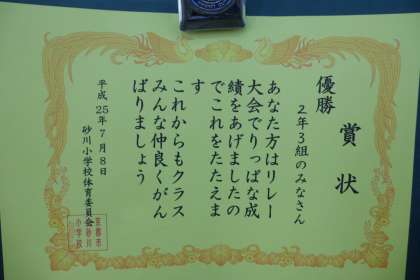 賞状
優勝
2年3組のみなさん
あなた方はリレー
大会でりっぱな成
績をあげましたの
でこれをたたえま
す
これからもクラス
みんな仲良くがん
ばりましょう
平成25年7月8日
砂川小学校体育委員会
京都市
立砂川
小学校